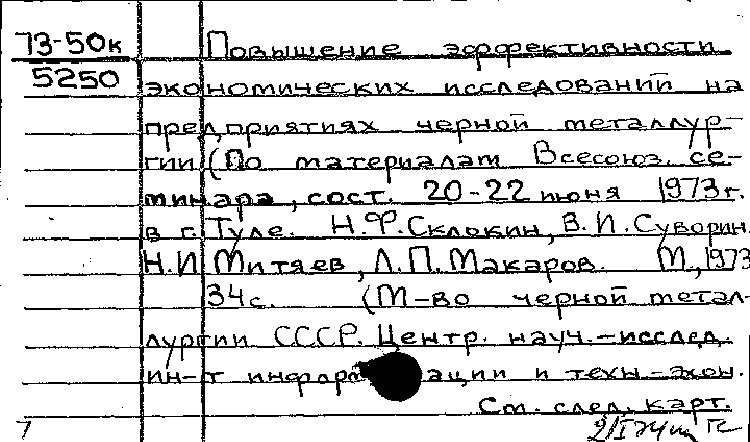 73-50к Повышение эффективности
5250 экономических исследований на
предприятиях черной металлур-
гии (По материалам Всесоюз. се-
минара, сост. 20-22 июня 1973г.
в г. Туле. Н.Ф.Склокин, В.И.Суворин.
Н.И Митяев, Л.П.Макаров. М., 1973
34с. (М-во черной метал-
лургии СССР. Центр. науч.-исслед.
ин-т информации и техн.-экон.
См. след. карт.
7